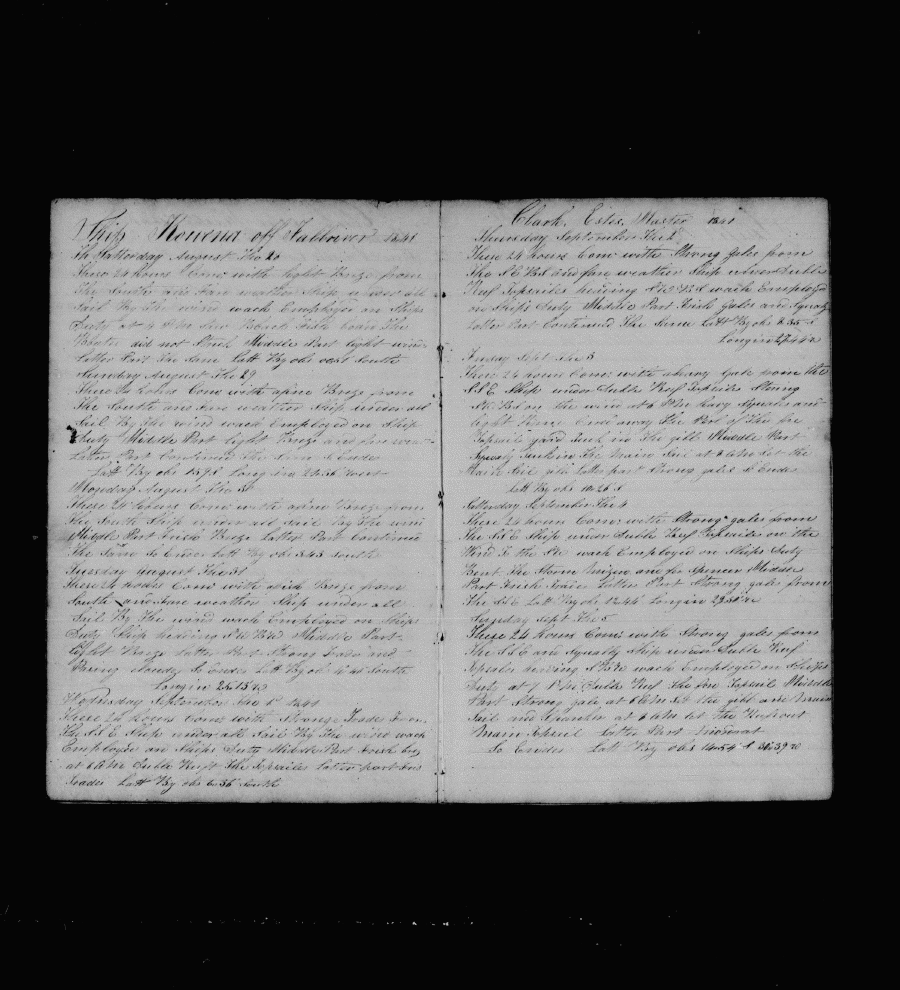 Ship Rowena off Fallriver 1841
Satterday August The 28
These 24 hours Comc with light Breze from
The South and Fare weather Ship under all
Sail By The wind wach Employed on Ships
Duty at 4 PM Saw Black Fish Boats The
Boats did not Stick Middle Part light wind
Latter Part The Same Latt By obs South
Sunday August The 29
These 24 hours Comc with a fine Breze from
The South and Fare weather Ship under all
Sail By The wind wach Employed on Ship
Duty Middle Part light Breze and fare
Latter Part Continued The Same So Endes
Latt By obs Long in 25 56 west
Monday August The 30
These 24 hours Comc with a fine Breze from
The South Ship under all Sail By The wind
Middle Part Fresh Breze Latter Part Continues
The Same So Endes Latt By obs 3 43 South
Tuesday august The 31
These 24 hours Comc with Breze from
South and Fare weather Ship under all
Sail By The wind wach Employed on Ships
Duty Ship heading Middle Part
Light Breze Latter Part Strong Trades and
cloudy So Endes Latt By ob South
Longin
Wednesday September The 1st 1841
These 24 hours Comc with Strong Trades from
The S E Ship under all Sail By The wind wach
Employed on Ships Duty Middle Part
at 6 AM Duble Reeft The Topsailes latter part
Trades Latt By obs 6 36 South
Clark Estes Master 1841
Thursday September The 2
These 24 hours Comc with Strong gales from
The S E fare weather Ship under Duble
Reef Topsailes heading wach Employed
on Ships Duty Middle Part Fresh gales and Squaly
Latter Part Continued The Same Latt By obs 8 35 S
Longin
Friday Sept The 3
These 24 hours Comc with a heavy gale from the
S S E Ship under Duble Reef Topsailes
on the wind at PM havy Squales and
away the Part of the fore
Topsail yard Middle Part
Squaly The Main Sail at AM Set the
Main Sail latter part Strong gales So Endes
Latt By obs 10 26 S
Satterday September The 4
These 24 hours Comc with Strong gales from
The S S E Ship under Duble Reef Topsailes on the
Wind To the wach Employed on Ships Duty
Bent The Storm Mizen and fore Spencer Middle
Part Fresh Trades latter Part Strong gales from
The S S E Latt By obs 12 44 Longin
Sunday Sept The 5
These 24 hours Comc with Strong gales from
The S S E and Squaly Ship under Duble Reef
Topsailes heading wach Employed on Ships
Duty at 7 PM Duble Reef The fore Topsail Middle
Part Strong gale at 6 AM Set the gib and Main
Sail and Spanker at AM let the Reef out
Main Topsail Latter Part Moderat
So Endes Latt By obs 14 54 S